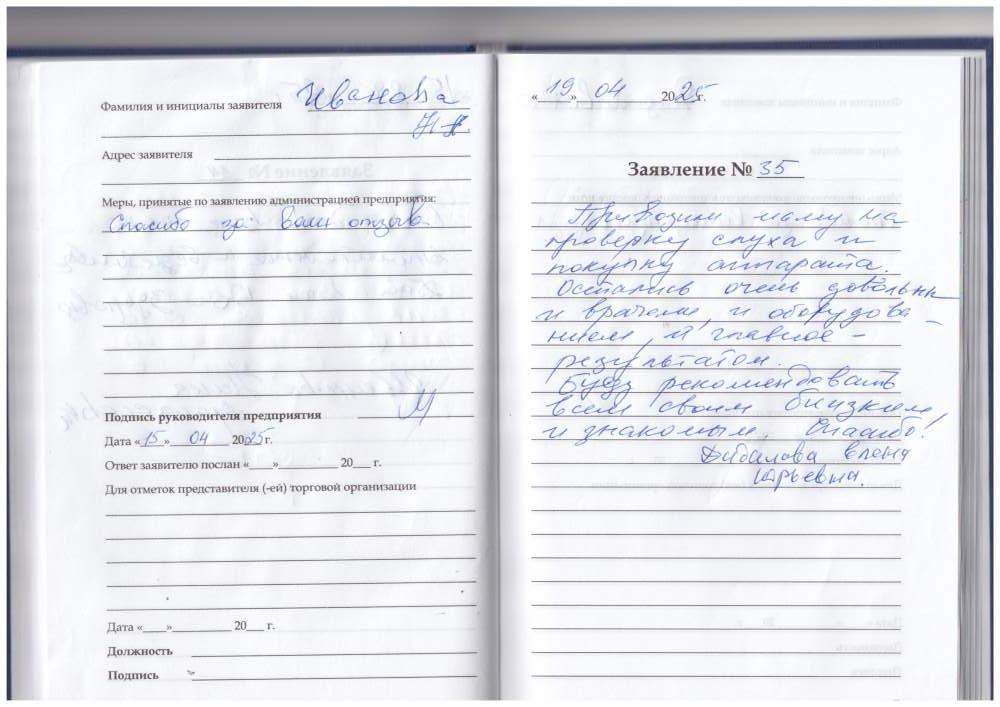 Фамилия и инициалы заявителя Иванова
Адрес заявителя
Меры, принятые по заявлению администрацией предприятия:
Спасибо за ваш отзыв
Подпись руководителя предприятия
Дата «15» 04 2025 г.
Ответ заявителю послан «___» ________ 20___ г.
Для отметок представителя (-ей) торговой организации
Дата «___» ________ 20___ г.
Должность
Подпись
«19» 04 2025 г.
Заявление № 35
Привозили маму на
проверку слуха и
покупку аппарата.
Остались очень довольны
и врачами, и оборудова-
нием, и главное -
результатом.
Буду рекомендовать
всем своим близким
и знакомым. Спасибо!
Елена
Юрьевна.